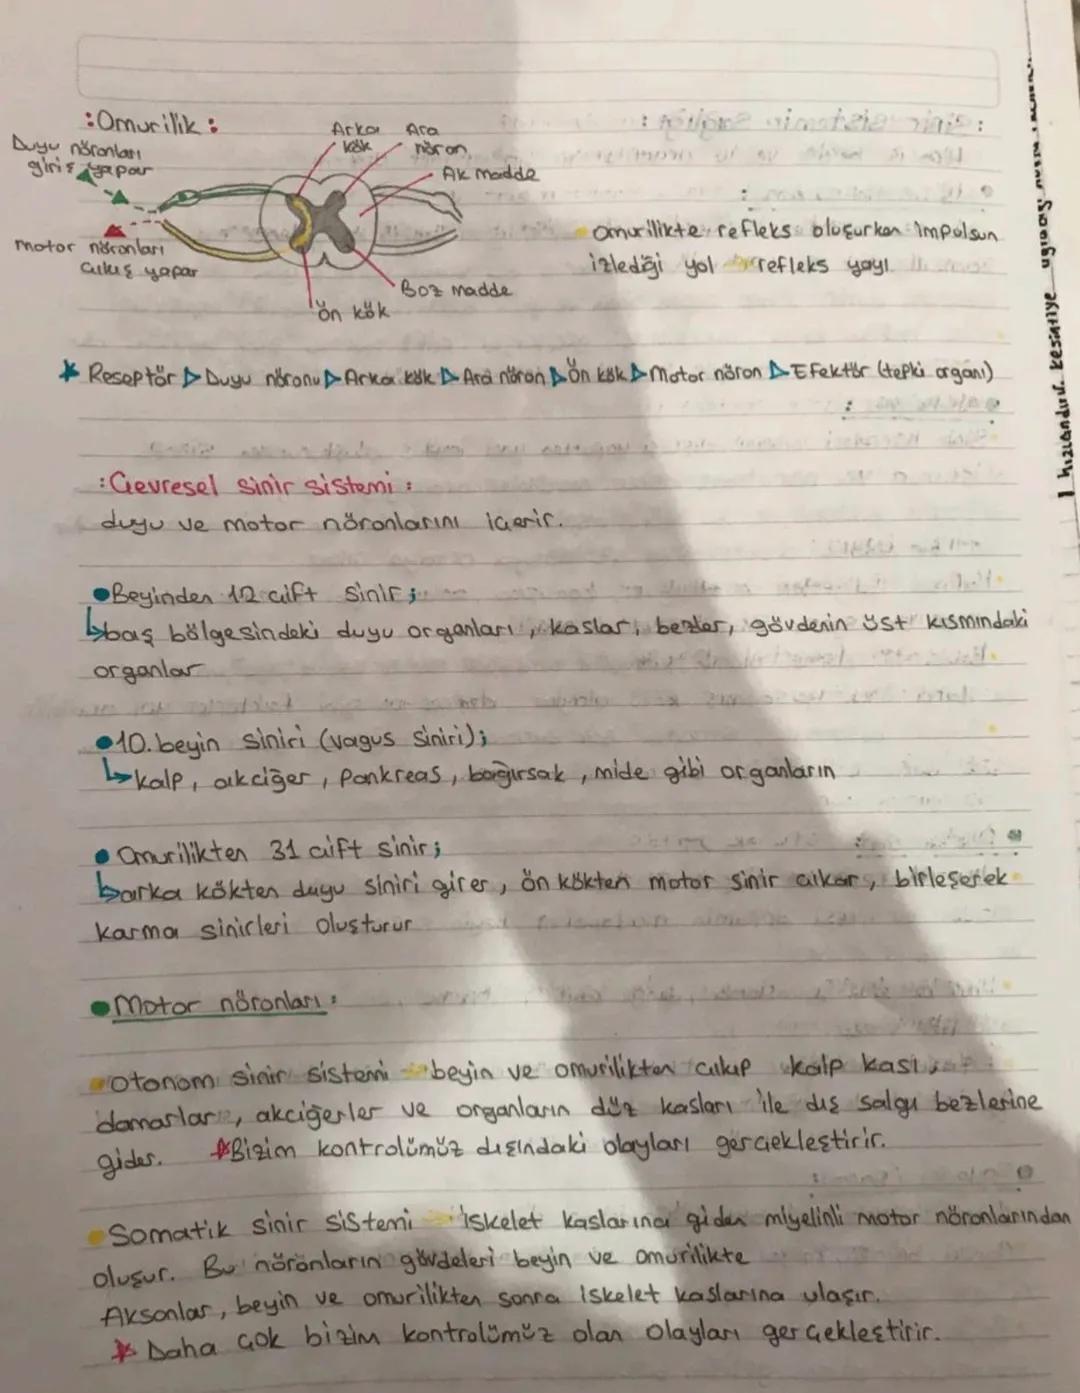 :Omurilik:
Duyu nöronları
giriş yapar
Arka
kök
Ara
nöron
Ak madde
motor nöronları
çıkış yapar
Ön kök
Boz madde
Omurilikte refleks oluşurken impulsun
izlediği yol refleks yayı
Reseptör ▷ Duyu nöronu ▷ Arka kök ▷ Ara nöron ▷ Ön kök ▷ Motor nöron ▷ Efektör (tepki organı)
:Çevresel sinir sistemi:
duyu ve motor nöronlarını içerir.
•Beyinden 12 çift sinir;
↳baş bölgesindeki duyu organları, kaslar, bezler, gövdenin üst kısmındaki
organlar
•10. beyin siniri (vagus siniri);
↳kalp, akciğer, pankreas, bağırsak, mide gibi organların
•Omurilikten 31 çift sinir;
↳arka kökten duyu siniri girer, ön kökten motor sinir çıkar, birleşerek
karma sinirleri oluşturur
•Motor nöronları:
•Otonom sinir sistemi beyin ve omurilikten çıkıp kalp kası,
damarlar, akciğerler ve organların düz kasları ile dış salgı bezlerine
gider. *Bizim kontrolümüz dışındaki olayları gerçekleştirir.
•Somatik sinir sistemi iskelet kaslarına giden miyelinli motor nöronlarından
oluşur. Bu nöronların gövdeleri beyin ve omurilikte
Aksonlar, beyin ve omurilikten sonra iskelet kaslarına ulaşır.
* Daha çok bizim kontrolümüz olan olayları gerçekleştirir.
hızlandırır. kesintiye